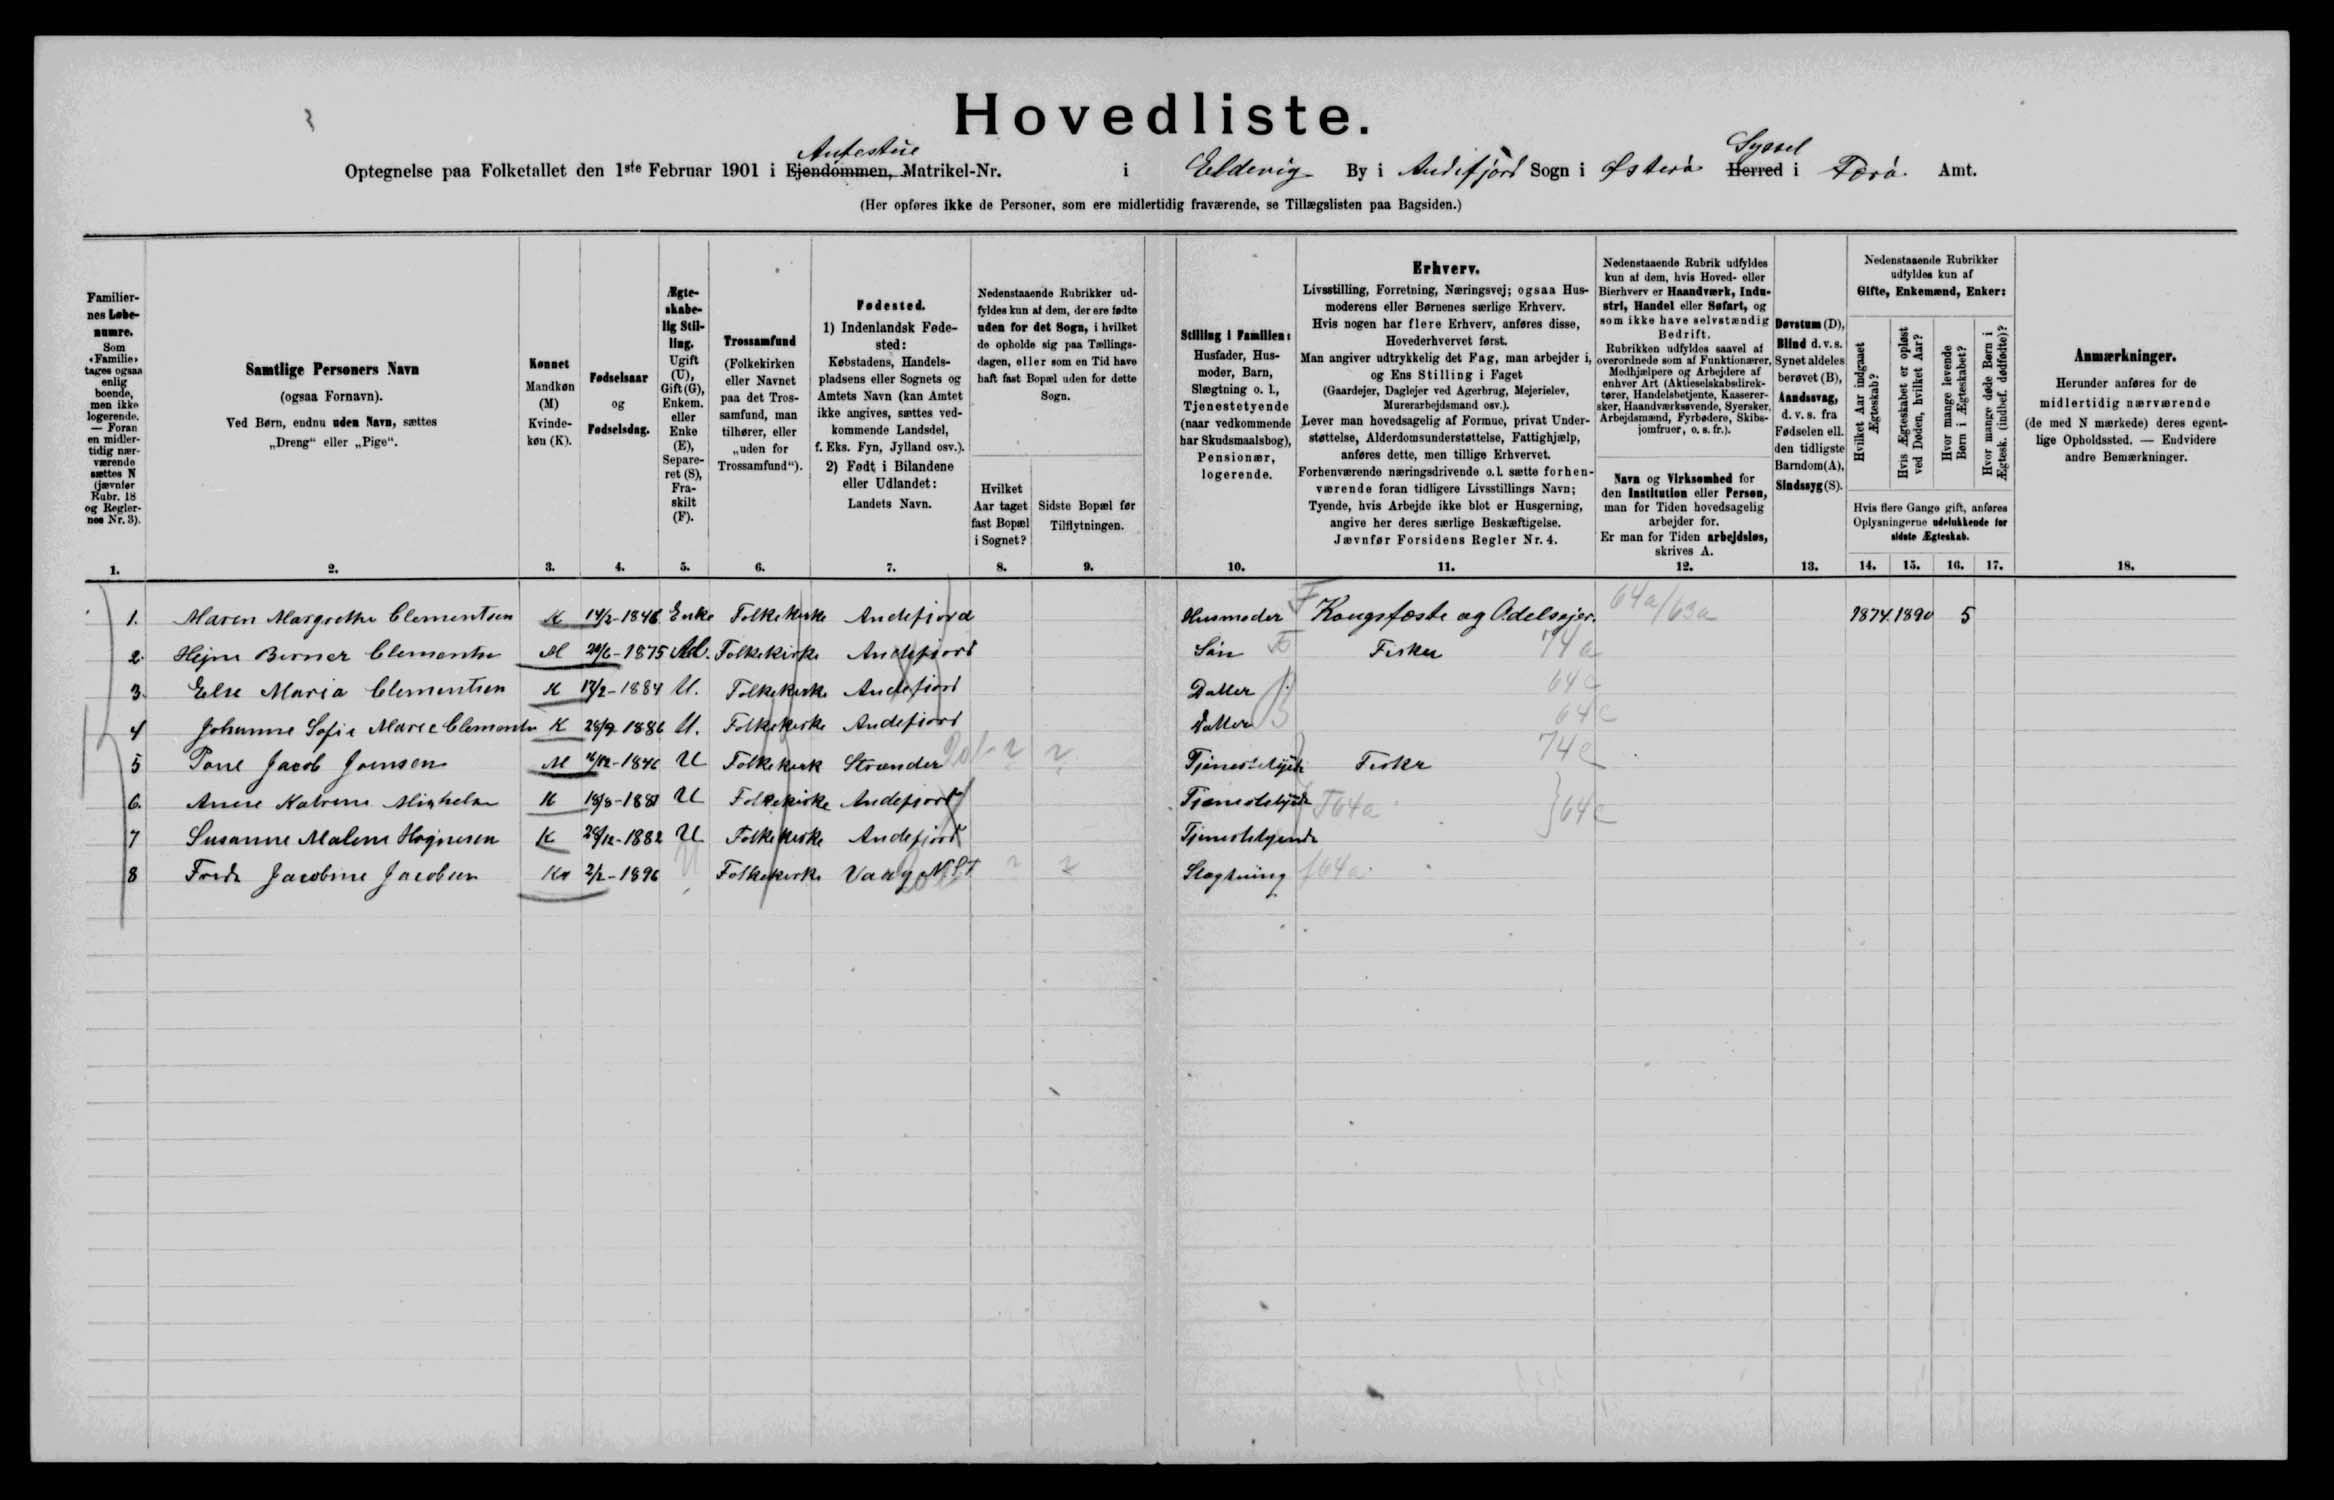 Hovedliste.
Syssel
Optegnelse paa Folketallet den 1ste Februar 1901 i Ejendommen, Matrikel-Nr. i Eldevig By i Andefjord Sogn i Østerö Herred i Færö Amt.
(Her opføres ikke de Personer, som ere midlertidig fraværende, se Tillægslisten paa Bagsiden.)
Familiernes Løbenumre.
Som «Familie» tages ogsaa enlig boende, men ikke logerende. — Foran en midlertidig nærværende sættes N (jævnfør Rubr. 18 og Reglernes Nr. 3).
1.
Samtlige Personers Navn
(ogsaa Fornavn).
Ved Børn, endnu uden Navn, sættes
„Dreng“ eller „Pige“.
2.
Kønnet
Mandkøn (M)
Kvindekøn (K).
3.
Fødselsaar
og
Fødselsdag.
4.
Ægteskabelig Stilling.
Ugift (U), Gift (G), Enkem. eller Enke (E), Separeret (S), Fraskilt (F).
5.
Trossamfund
(Folkekirken eller Navnet paa det Trossamfund, man tilhører, eller „uden for Trossamfund“).
6.
Fødested.
1) Indenlandsk Fødested:
Købstadens, Handelspladsens eller Sognets og Amtets Navn (kan Amtet ikke angives, sættes vedkommende Landsdel, f. Eks. Fyn, Jylland osv.).
2) Født i Bilandene eller Udlandet:
Landets Navn.
7.
Nedenstaaende Rubrikker udfyldes kun af dem, der ere fødte uden for det Sogn, i hvilket de opholde sig paa Tællingsdagen, eller som en Tid have haft fast Bopæl uden for dette Sogn.
Hvilket Aar taget fast Bopæl i Sognet?
8.
Sidste Bopæl før Tilflytningen.
9.
Stilling i Familien:
Husfader, Husmoder, Barn, Slægtning o. l., Tjenestetyende (naar vedkommende har Skudsmaalsbog), Pensionær, logerende.
10.
Erhverv.
Livsstilling, Forretning, Næringsvej; ogsaa Husmoderens eller Børnenes særlige Erhverv.
Hvis nogen har flere Erhverv, anføres disse, Hovederhvervet først.
Man angiver udtrykkelig det Fag, man arbejder i, og Ens Stilling i Faget
(Gaardejer, Daglejer ved Agerbrug, Mejerielev, Murerarbejdsmand osv.).
Lever man hovedsagelig af Formue, privat Understøttelse, Alderdomsunderstøttelse, Fattighjælp, anføres dette, men tillige Erhvervet.
Forhenværende næringsdrivende o. l. sætte forhenværende foran tidligere Livsstillings Navn; Tyende, hvis Arbejde ikke blot er Husgerning, angive her deres særlige Beskæftigelse.
Jævnfør Forsidens Regler Nr. 4.
11.
Nedenstaaende Rubrik udfyldes kun af dem, hvis Hoved- eller Bierhverv er Haandværk, Industri, Handel eller Søfart, og som ikke have selvstændig Bedrift.
Rubrikken udfyldes saavel af overordnede som af Funktionærer, Medhjælpere og Arbejdere af enhver Art (Aktieselskabsdirektører, Handelsbetjente, Kasserersker, Haandværkssvende, Syersker, Arbejdsmænd, Fyrbødere, Skibsjomfruer, o. s. fr.).
Navn og Virksomhed for den Institution eller Person, man for Tiden hovedsagelig arbejder for.
Er man for Tiden arbejdsløs, skrives A.
12.
Døvstum (D), Blind d. v. s. Synet aldeles berøvet (B), Aandssvag, d. v. s. fra Fødselen ell. den tidligste Barndom (A), Sindssyg (S).
13.
Nedenstaaende Rubrikker udfyldes kun af
Gifte, Enkemænd, Enker:
Hvilket Aar indgaaet Ægteskab?
Hvis Ægteskabet er opløst ved Døden, hvilket Aar?
Hvor mange levende Børn i Ægteskabet?
Hvor mange døde Børn i Ægtesk. (indbef. dødfødte)?
Hvis flere Gange gift, anføres Oplysningerne udelukkende for sidste Ægteskab.
14. 15. 16. 17.
Anmærkninger.
Herunder anføres for de midlertidig nærværende (de med N mærkede) deres egentlige Opholdssted. — Endvidere andre Bemærkninger.
18.
1. Maren Margrethe Clementsen K 14/2-1846 Enke Folkekirke Andefjord Husmoder F Kongsfæste og Odelsejer. 64a/63a 1874 1890 5
2. Hejne Berner Clementsen M 1875 Folkekirke Andefjord Sön Fisker 74a
3. Else Maria Clementsen K 17/2-1884 U. Folkekirke Andefjord Datter 64c
4 Johanne Sofie Marie Clementsen K 1886 U. Folkekirke Andefjord Datter 64c
5 Jacob Joensen M 1846 U Folkekirk Strænder Tjenestetyende Fisker 74c
6. Katrine K 18/8-1881 U Folkekirke Andefjord Tjenestetyende T64a 64c
7 Susanne Malene Hognesen K 28/12-1882 U Folkekirke Andefjord Tjenestetyende
8 Jacobine Jacobsen 2/2-1896 U Folkekirke Vaag Slægtning f64a